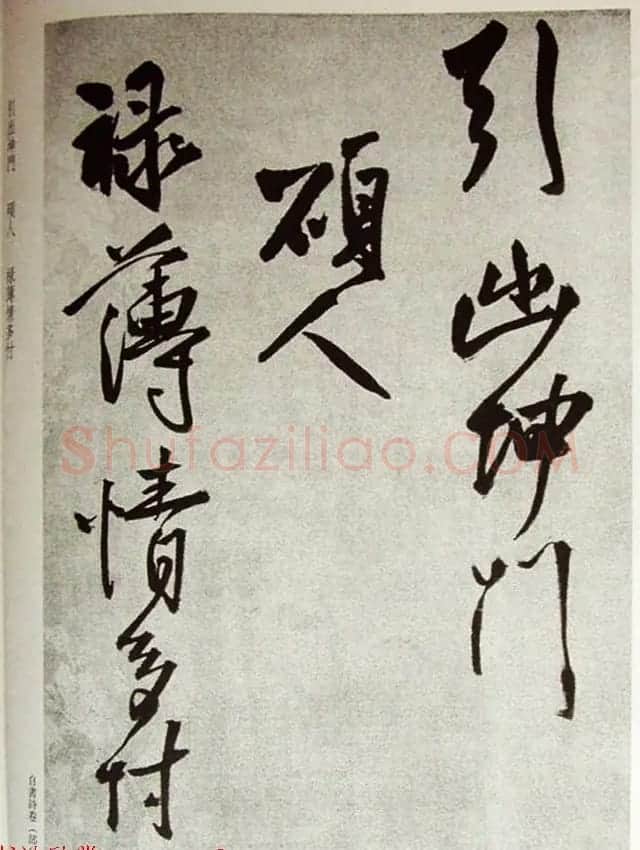 引出坤門
碩人
祿薄情多付
引出坤門　碩人　祿薄情多付
自書詩卷（部
Shufaziliao.COM